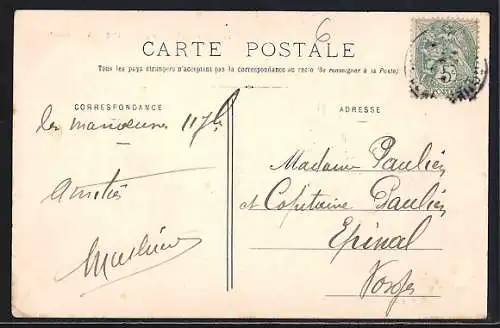 6
CARTE POSTALE
Tous les pays étrangers n'acceptent pas la correspondance au recto (Se renseigner à la Poste)
CORRESPONDANCE
ADRESSE
5
Les manœuvres
Amitiés
Madame Paulin
et Capitaine Paulin
Epinal
Vosges